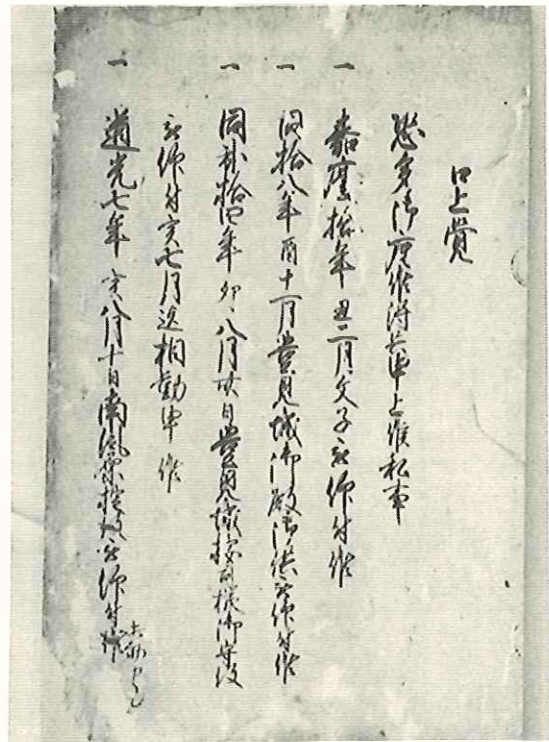 口上覚
恐多御座候得共申上候私事
一 嘉慶拾年丑二月文子被仰付候
一 同拾八年酉十一月豊見城御殿御供被仰付候
一 同弐拾四年卯八月廿日豊見城按司様御守役
被仰付亥七月迄相勤申候
一 道光七年亥八月十日南風原掟役被仰付候